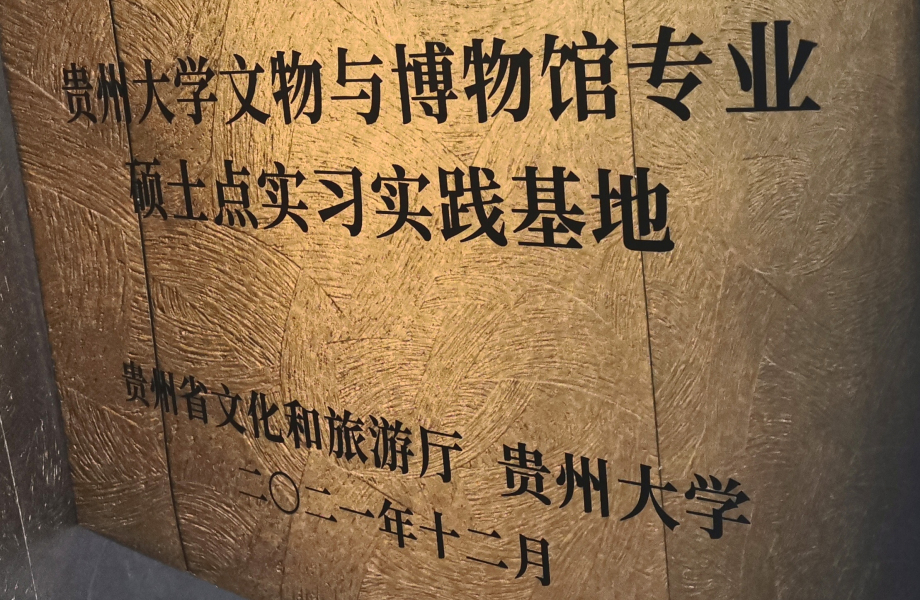 贵州大学文物与博物馆专业
硕士点实习实践基地
贵州省文化和旅游厅 贵州大学
二〇二一年十二月